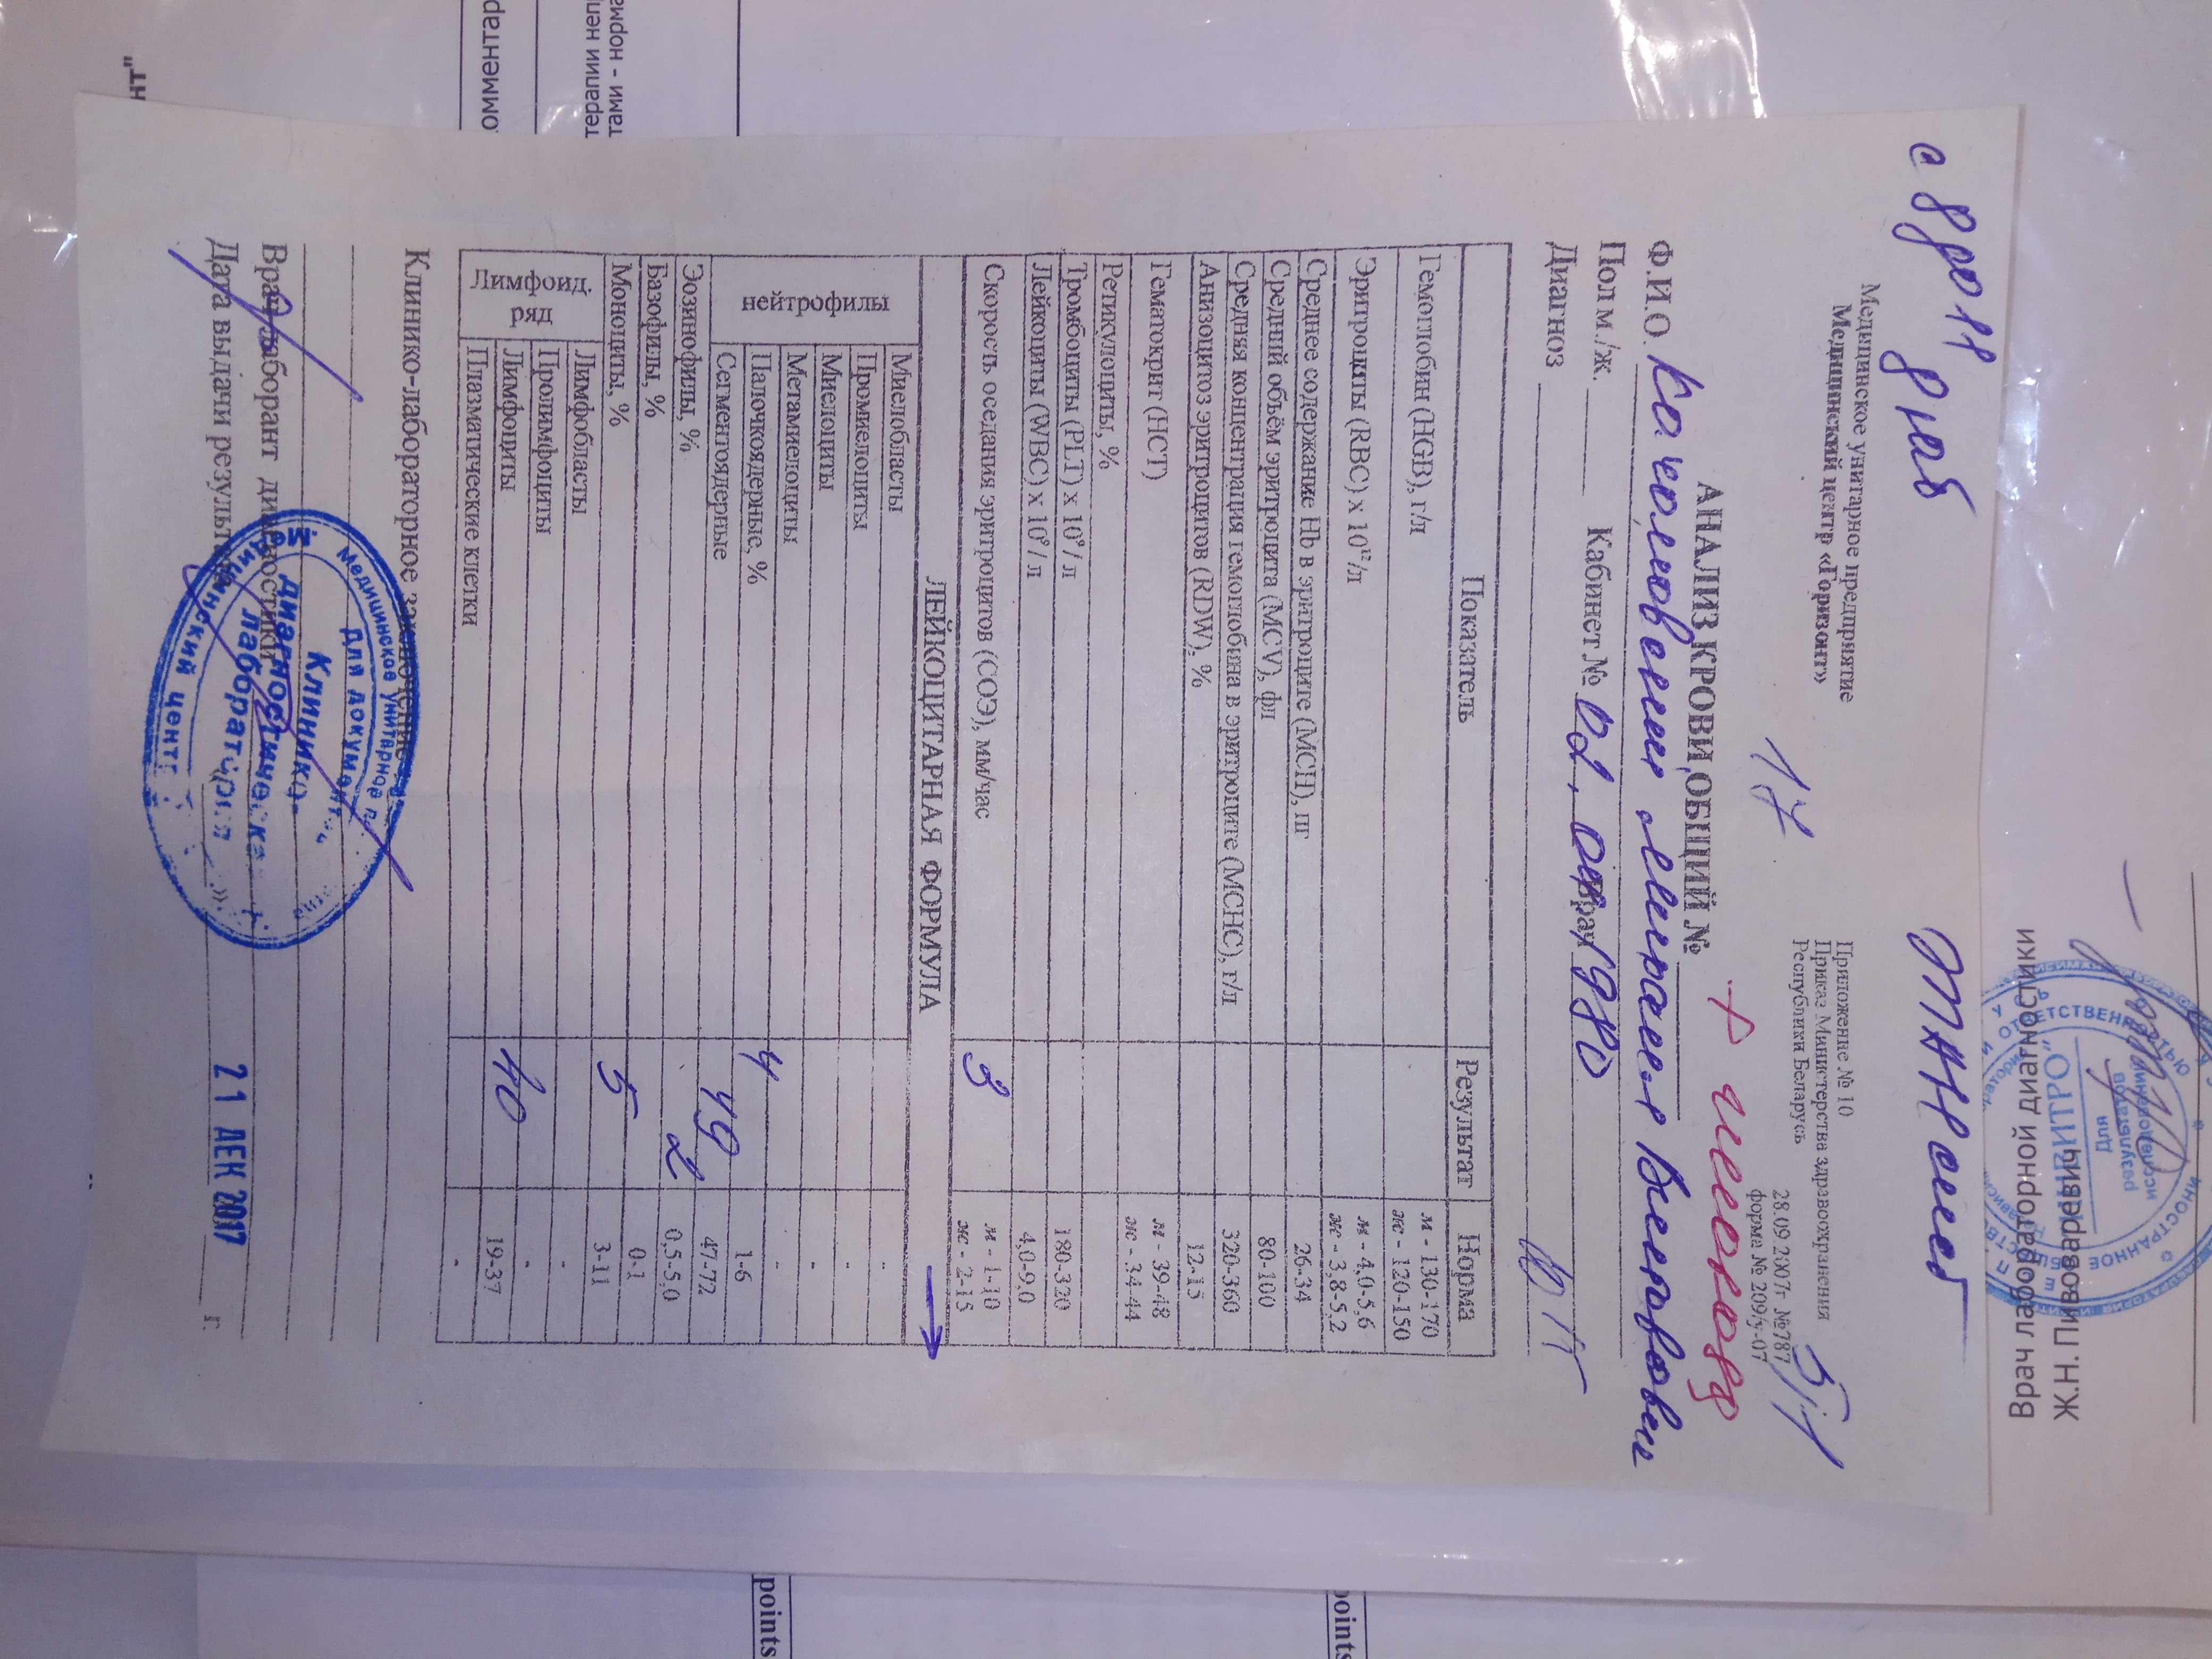 Врач лабораторной диагностики
Ж.Н. Пивоваревич
ИНОСТРАННОЕ
"ИНВИТРО"
Для
результатов
исследований
с 8 до 11
Медицинское унитарное предприятие
Медицинский центр «Горизонт»
Приложение № 10
Приказ Министерства здравоохранения
Республики Беларусь
28.09.2007г №787
форма № 209/у-07
17
5/1
+
АНАЛИЗ КРОВИ ОБЩИЙ №
Ф.И.О. Михаил
Пол м./ж. Кабинет № Врач
02.04.1980
Диагноз
Показатель Результат Норма
Гемоглобин (HGB), г/л м - 130-170
ж - 120-150
Эритроциты (RBC) х 10¹²/л м - 4,0-5,6
ж - 3,8-5,2
Среднее содержание Hb в эритроците (MCH), пг 26-34
Средний объём эритроцита (MCV), фл 80-100
Средняя концентрация гемоглобина в эритроците (MCHC), г/л 320-360
Анизоцитоз эритроцитов (RDW), % 12-15
Гематокрит (HCT) м - 39-48
ж - 34-44
Ретикулоциты, %
Тромбоциты (PLT) х 10⁹/ л 180-320
Лейкоциты (WBC) х 10⁹/ л 4,0-9,0
Скорость оседания эритроцитов (СОЭ), мм/час 3 м - 1-10
ж - 2-15
ЛЕЙКОЦИТАРНАЯ ФОРМУЛА →
нейтрофилы
Миелобласты -
Промиелоциты -
Миелоциты -
Метамиелоциты -
Палочкоядерные, % 4 1-6
Сегментоядерные 49 47-72
Эозинофилы, % 2 0,5-5,0
Базофилы, % 0-1
Моноциты, % 5 3-11
Лимфоид. ряд
Лимфобласты -
Пролимфоциты -
Лимфоциты 40 19-37
Плазматические клетки -
Клинико-лабораторное заключение
Врач-лаборант диагностики
Дата выдачи результата « » 21 ДЕК 2017 г.
Медицинское унитарное
Для документов
Клинико-
диагностическая
лаборатория
Медицинский центр
points
points